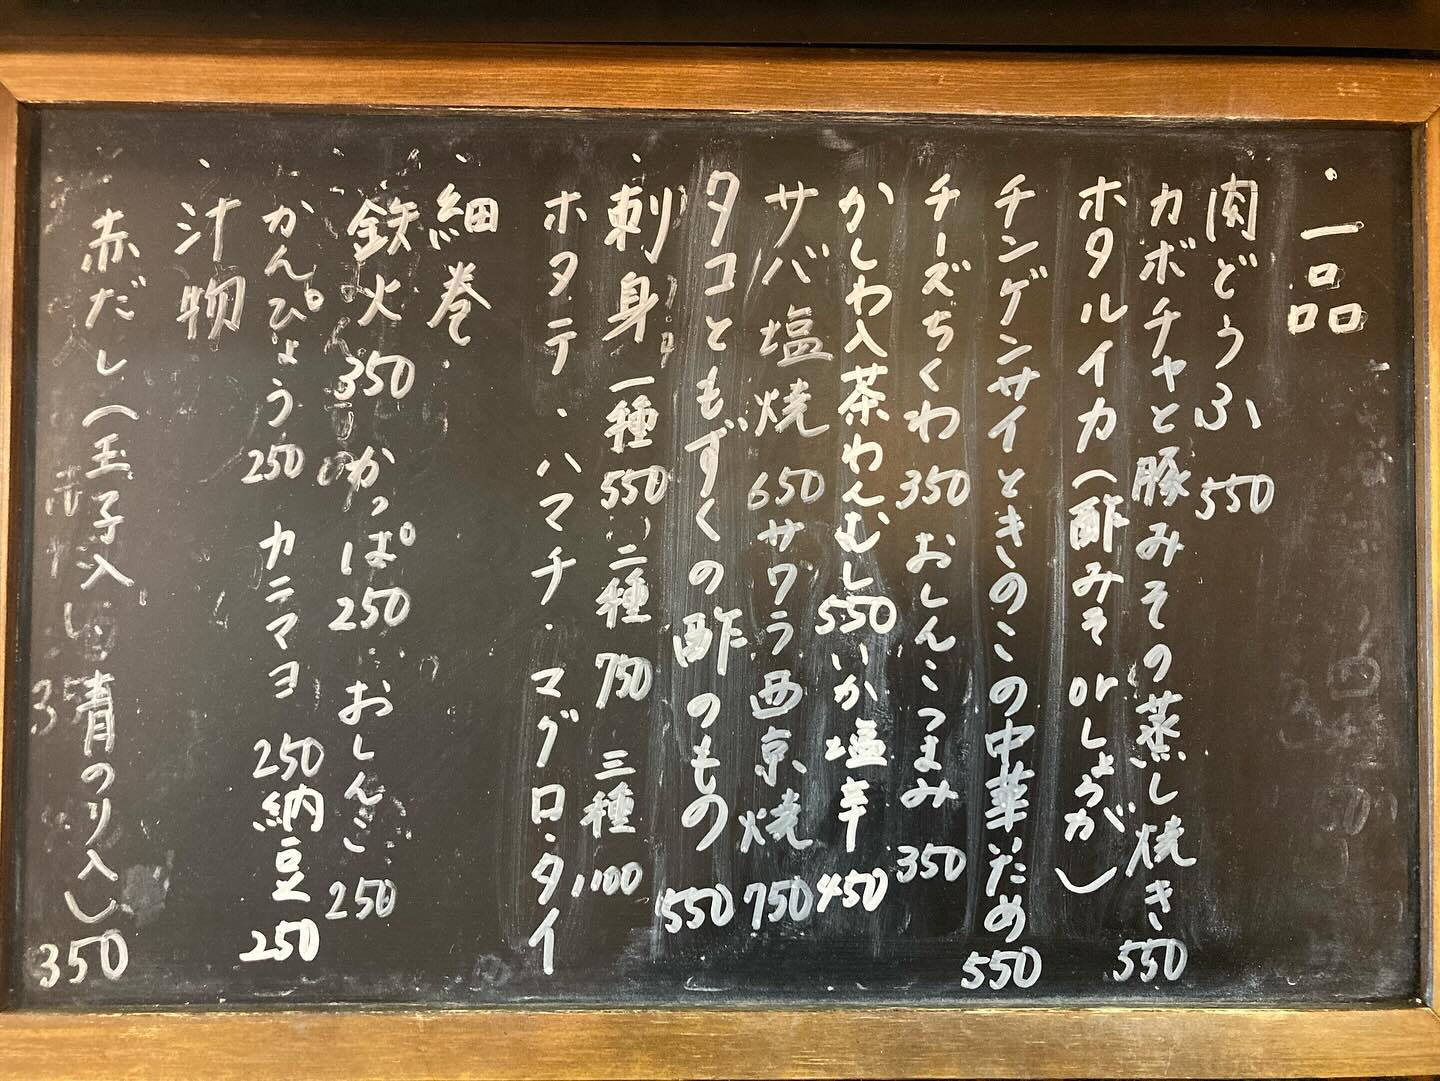 ・一品
肉どうふ 550
カボチャと豚みその蒸し焼き 550
ホタルイカ(酢みそorしょうが)
チンゲンサイときのこの中華いため 550
チーズちくわ 350 おしんこつまみ 350
かしわ入茶わんむし 550 いか塩辛 450
サバ塩焼 650 サワラ西京焼 750
タコともずくの酢のもの 550
・刺身 一種 550 二種 750 三種 1,100
ホタテ・ハマチ・マグロ・タイ
・細巻
鉄火 350 かっぱ 250 おしんこ 250
かんぴょう 250 カニマヨ 250 納豆 250
・汁物
赤だし(玉子入 青のり入) 350